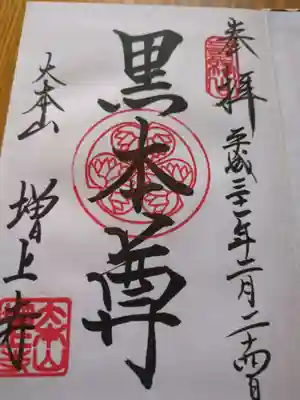 奉拝
平成三十一年二月二十四日
黒本尊
大本山
増上寺